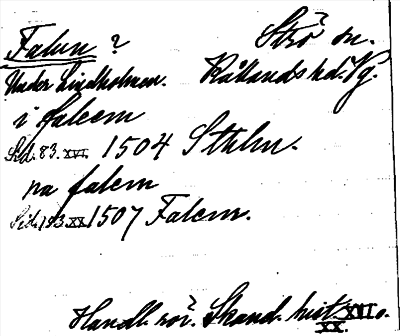 Falun ? Strö sn.
Under Lindholmen. Kållands hd. Vg.
i faleem
Sid. 83. XVI. 1504 Sthlm.
pa falem
Sid. 193. XX. 1507 Falem.
Handl. rör. Skand. hist. XVI o.
XX.